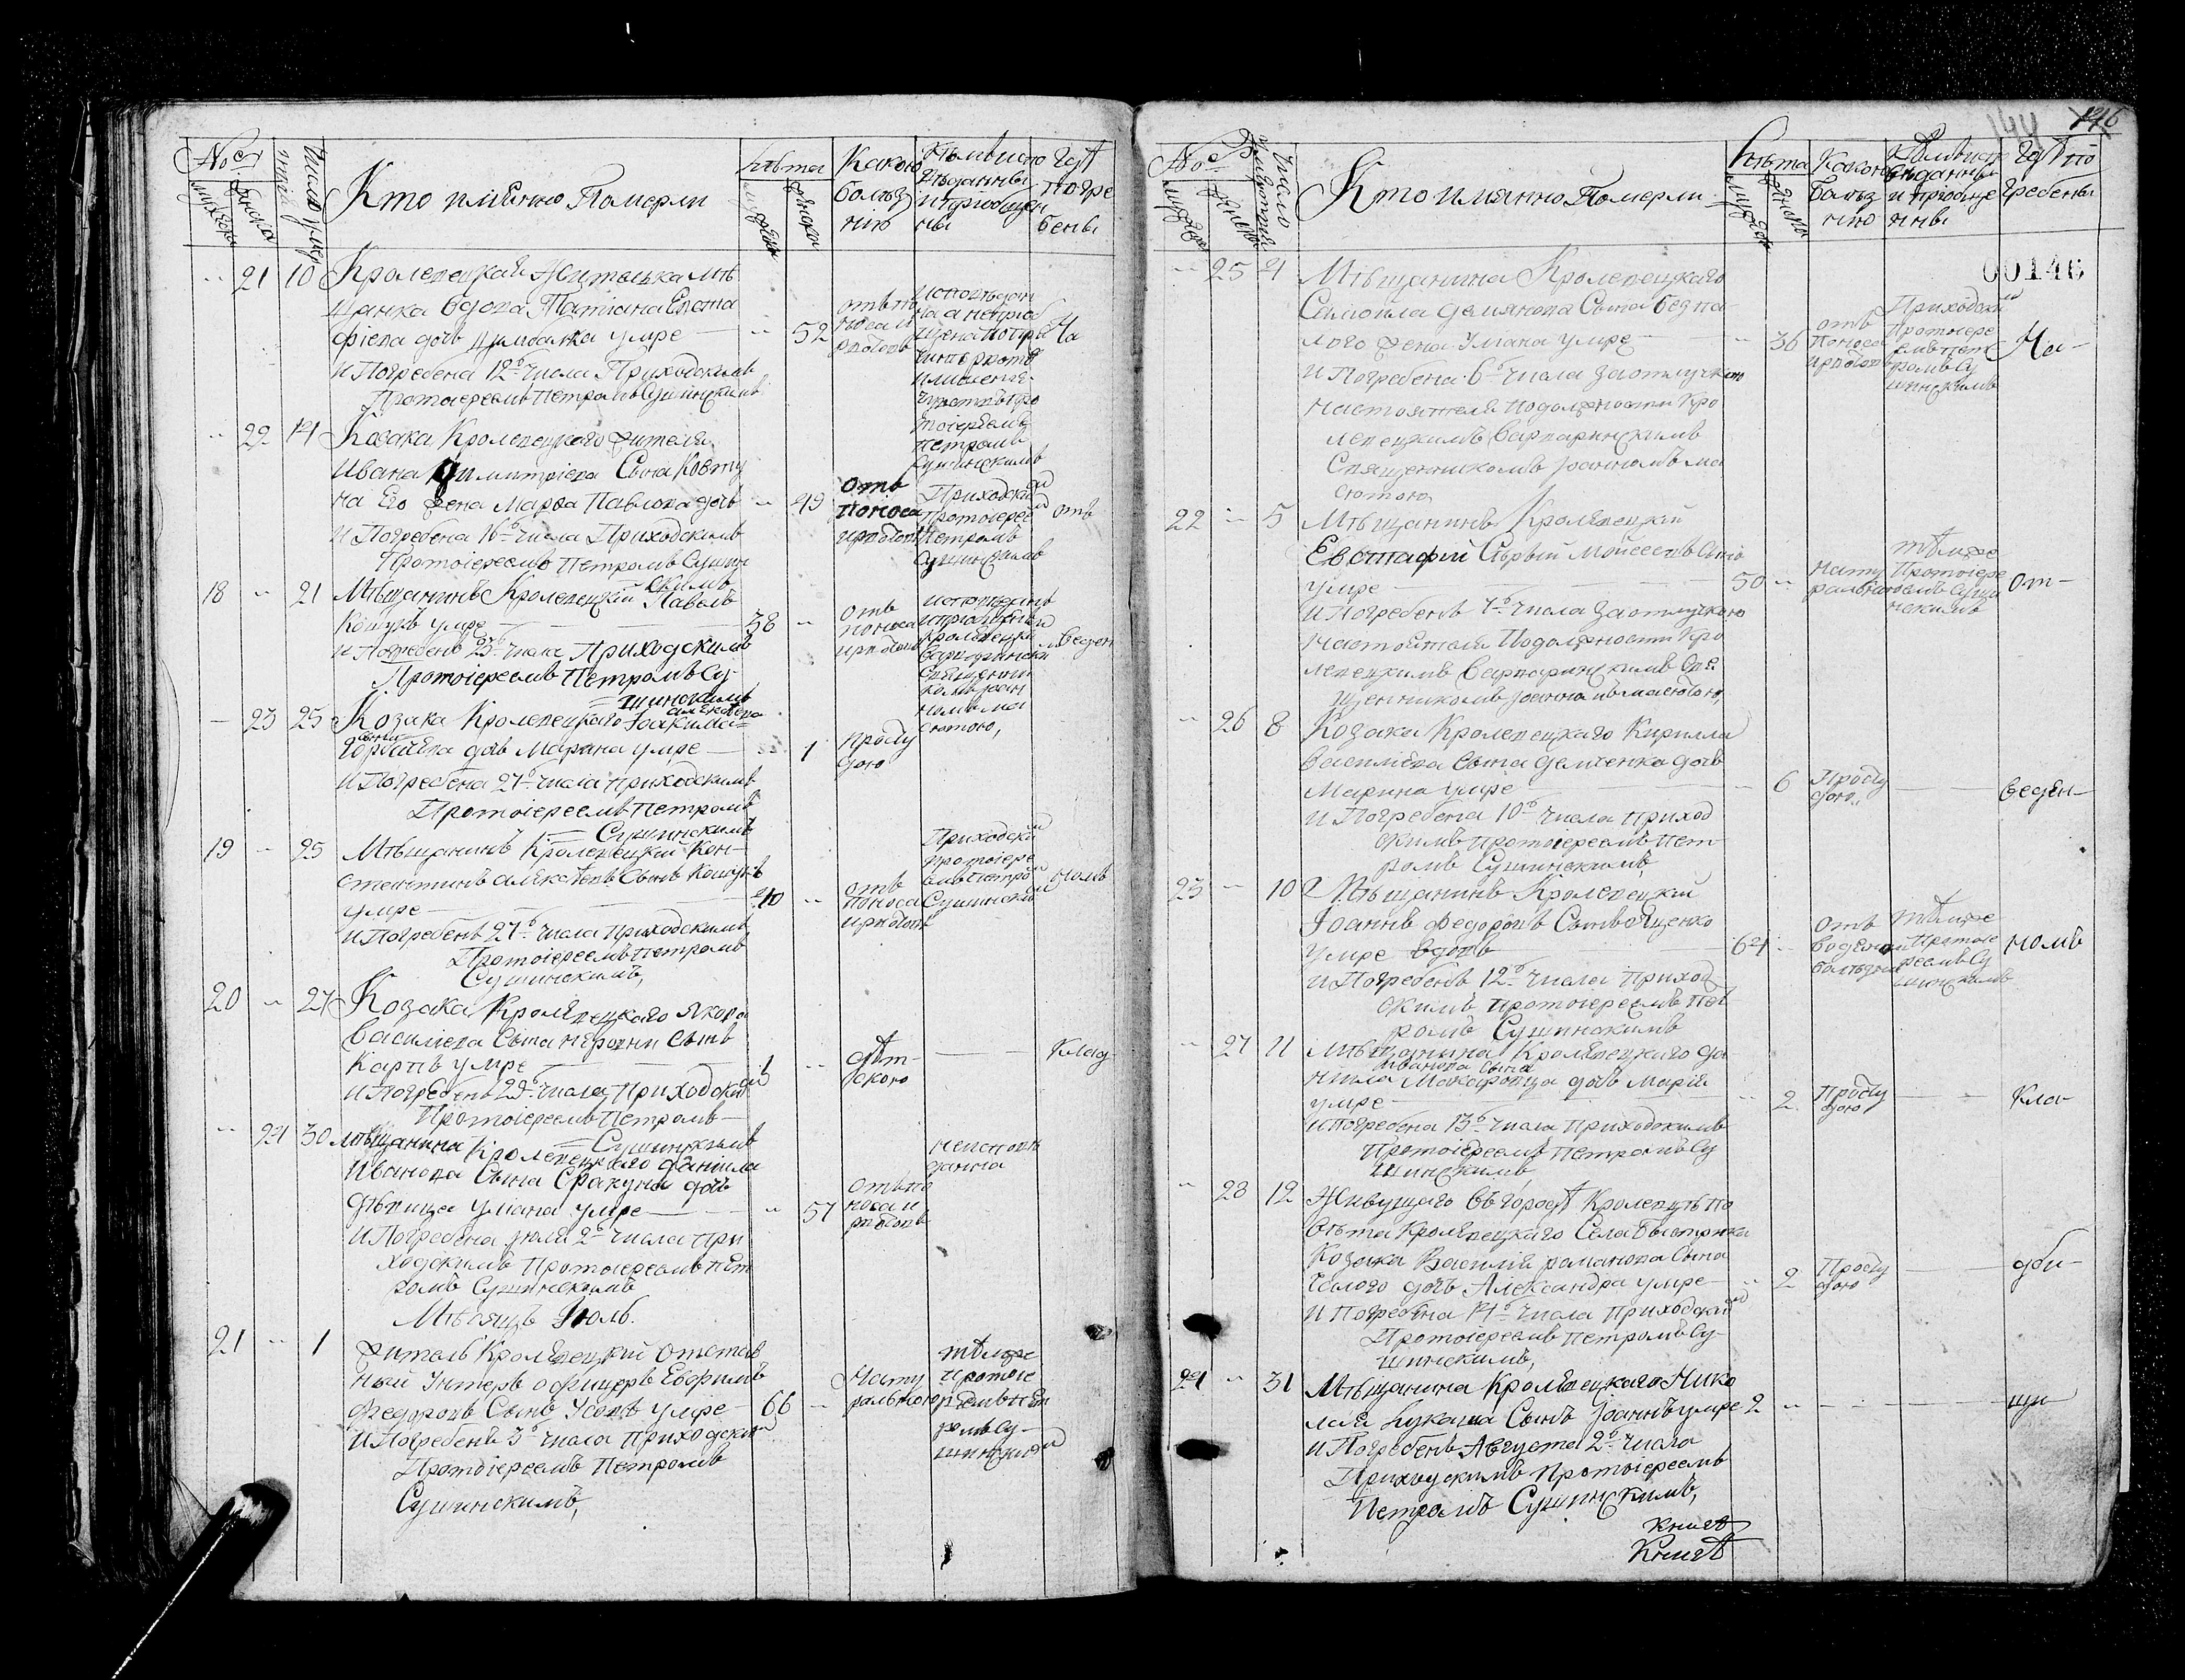 № съ
Число умер
Кто имянно Померли
Лѣта
Какою
болѣз
нию
Гдѣ
Погре
бены
21 10 Кролевецкая Жителька мѣ
щанка вдова Татіана Евста
фіева дочь Цимбалка умре 52
И Погребена 12 числа Приходскимъ
Протоіереемъ Петромъ Сушинскимъ
на
22 14 Козака Кролевецкого жителя
Ивана Димитріева Сына Ковту
на Его жена Марфа Павлова дочь 49
И Погребена 16 числа Приходскимъ
Протоіереемъ Петромъ Сушин
скимъ
отъ
поноса
Приходскимъ
Протоіереемъ
Петромъ
Сушинскимъ
отъ
18 21 Мѣщанинъ Кролевецкій Павелъ
Кошукъ умре 38
И Погребенъ 23 числа Приходскимъ
Протоіереемъ Петромъ Су
шинскимъ
отъ
поноса
веден
23 25 Козака Кролевецкаго Іоакима
дочь Марина умре 1
И Погребена 27 числа приходскимъ
Протоіереемъ Петромъ
Сушинскимъ
просту
дою
19 25 Мѣщанинъ Кролевецкій Кон
стентинъ Алексѣевъ Сынъ Кошукъ
умре 40
И Погребенъ 27 числа приходскимъ
Протоіереемъ Петромъ
Сушинскимъ,
отъ
поноса
Приходскимъ
протоіере
емъ Петромъ
Сушинскимъ
номъ
20 27 Козака Кролевецкаго Якова
Василіева Сына Сынъ
Карпъ умре 1
И Погребенъ 29 числа Приходскимъ
Протоіереемъ Петромъ
Сушинскимъ
дѣт
скою
клад
24 30 мѣщанина Кролевецкаго Даніила
Иванова Сына Сракуна дочь
дѣвица Уліана умре 57
И Погребена Іюля 2 числа При
ходскимъ Протоіереемъ Пет
ромъ Сушинскимъ
отъ по
носа и
неисповѣ
данна
Мѣсяцъ Іюль.
21 1 Житель Кролевецкій Отстав
ный Унтеръ офицеръ Евфимъ
Федоровъ Сынъ Усовъ умре 66
И Погребенъ 3 числа Приходским
Протоіереемъ Петромъ
Сушинскимъ,
Нату
ральною
тѣмже
протоіе
реемъ Пет
ромъ Су
шинским
144
146
00146
№ съ
Число
Кто имянно Померли
Лѣта
Какою
болѣз
нію
Гдѣ по
гребены
25 4 Мѣщанина Кролевецкаго
Самоила Демянова Сына Безпа
лого жена Улиана умре 36
И Погребена 6 числа за отлучкою
настоятеля по должности Кро
левецкимъ Варваринскимъ
Священникомъ Іоанномъ Ма
сютою
отъ
поноса
Приходским
Протоіере
емъ Пет
ромъ Су
шинскимъ
на
22 5 Мѣщанинъ Кролевецкій
Евстафій Сѣрый Мойсеевъ Сынъ
умре 50
И Погребенъ 7 числа за отлучкою
настоятеля По должности Кро
левецкимъ Варваринскимъ Свя
щенникомъ Іоанномъ Масютою,
нату
ральною
тѣмже
Протоіере
емъ Суши
нскимъ
от
26 8 Козака Кролевецкаго Кирилла
Василіева Сына Демченка дочь
Марина умре 6
И Погребена 10 числа приход
скимъ протоіереемъ Пет
ромъ Сушинскимъ,
Просту
дою
веден
23 10 Мѣщанинъ Кролевецкій
Іоаннъ Федоровъ Сынъ Яценко
умре вдовъ 64
И Погребенъ 12 числа Приход
скимъ протоіереемъ Пет
ромъ Сушинскимъ
отъ
водяной
болѣзни
тѣмже
Протоіе
реемъ Су
шинскимъ
номъ
27 11 Мѣщанина Кролевецкаго Да
Иванова Сына
ниила Макаровца дочь Марія
умре 2
И Погребена 13 числа Приходскимъ
Протоіереемъ Петромъ Су
шинскимъ
Просту
дою
кла
28 12 Живущаго въ городѣ Кролевцѣ По
вѣта Кролевецкаго Села Быстрика
Козака Василія Романова Сына
Чалого дочь Александра умре 2
И Погребена 14 числа Приходским
Протоіереемъ Петромъ Су
шинскимъ,
Просту
дою
дби
24 31 Мѣщанина Кролевецкаго Нико
лая Букаша Сынъ Іоаннъ умре 2
и Погребенъ Августа 2 числа
Приходскимъ Протоіереемъ
Петромъ Сушинскимъ,
щи